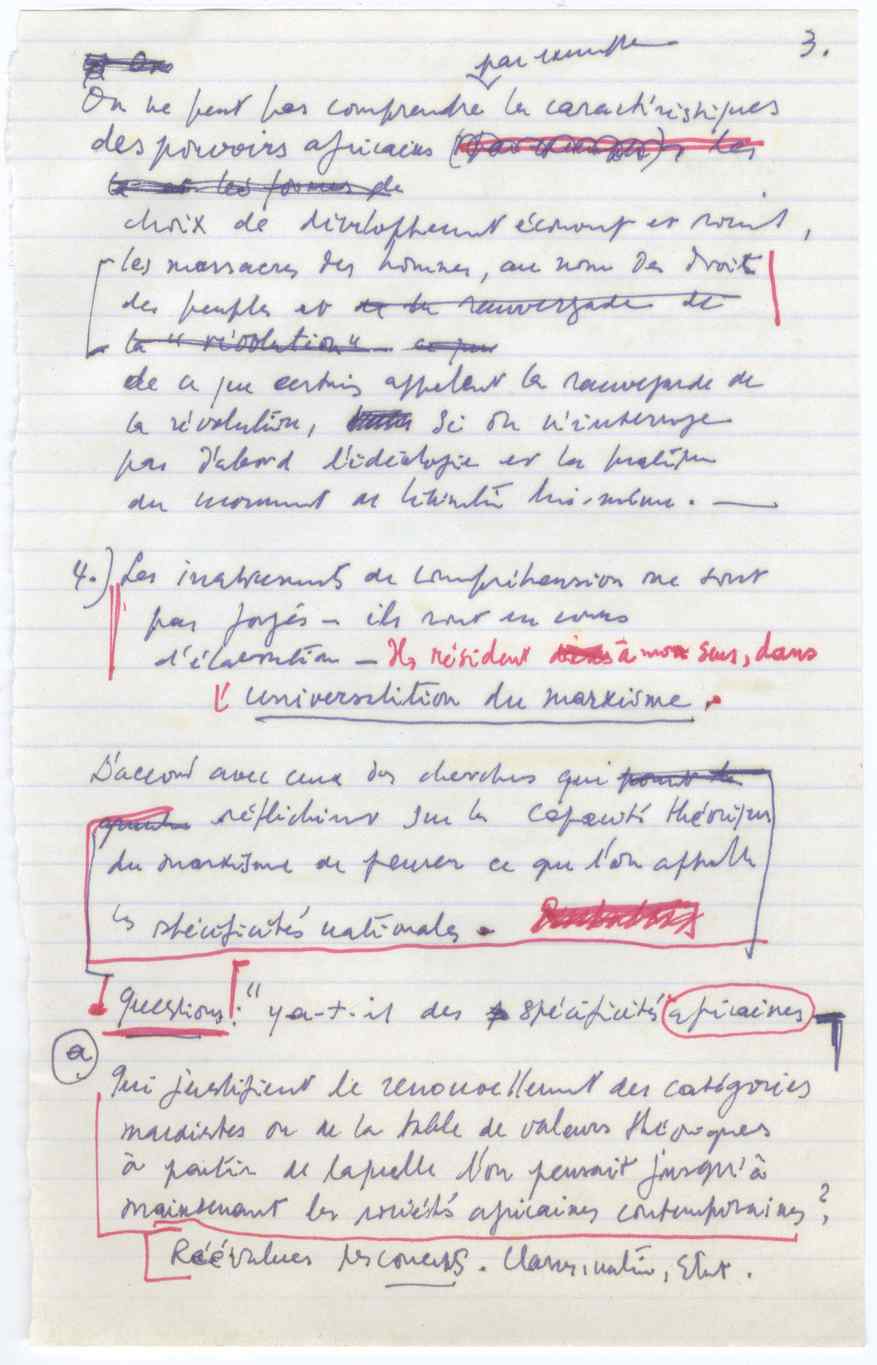 3.
par exemple
On ne peut pas comprendre les caractéristiques
des pouvoirs africains
choix de développement économ et social,
les massacres des hommes, au nom des droits
des peuples et
la "révolution"
de ce que certains appellent la sauvegarde de
la révolution, si on n'interroge
pas d'abord l'idéologie et la pratique
du mouvement de lui-même.
4.) Les instruments de compréhension ne sont
pas forgés – ils sont en cours
d'élaboration – Ils résident à mon sens, dans
du marxisme.
D'accord avec ceux des cherches qui
réfléchissent sur la capacité théorique
du marxisme de penser ce que l'on appelle
les spécificités nationales.
Questions : "y a-t-il des spécificités africaines
(a)
Qui justifient le renouvellement des catégories
marxistes ou de la table de valeurs théoriques
à partir de laquelle l'on pensait jusqu'à
maintenant les sociétés africaines contemporaines ?
Réévaluer les concepts. Classes, nation, Etat.